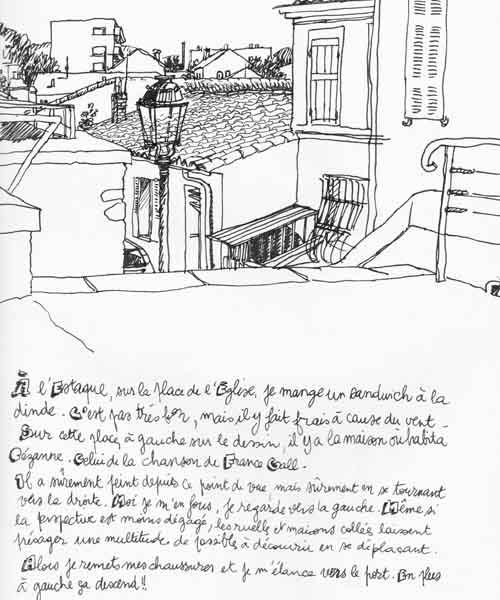 À l'Estaque, sur la place de l'Eglise, je mange un sandwich à la
dinde. C'est pas très bon, mais il y fait frais à cause du vent.
Sur cette place, à gauche sur le dessin, il y a la maison où habita
Cézanne. Celui de la chanson de France Gall.
Il a sûrement peint depuis ce point de vue, mais sûrement en se tournant
vers la droite. Moi je m'en fous, je regarde vers la gauche. Même si
la perspective est moins dégagé, les ruelles et maisons collées laissent
présager une multitude de possibles à découvrir en se déplaçant.
Alors je remets mes chaussures et je m'élance vers le port. En plus
à gauche ça descend!!